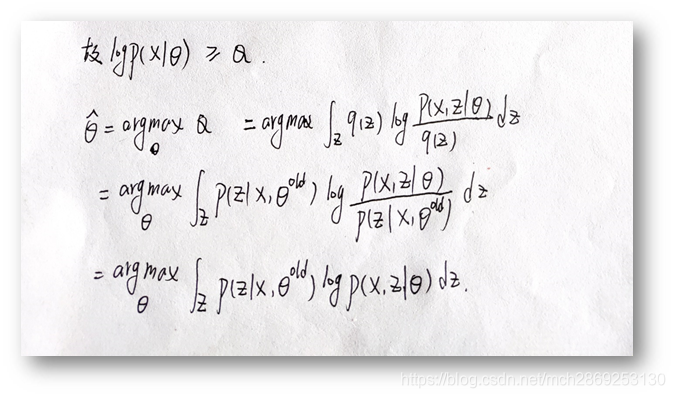 故 log p(x|θ) ≥ Q.
θ̂ = argmax_θ Q = argmax ∫_z q(z) log \frac{p(x,z|θ)}{q(z)} dz
= argmax_θ ∫_z p(z|x,θ^{old}) log \frac{p(x,z|θ)}{p(z|x,θ^{old})} dz
= argmax_θ ∫_z p(z|x,θ^{old}) log p(x,z|θ) dz.
https://blog.csdn.net/mch2869253130